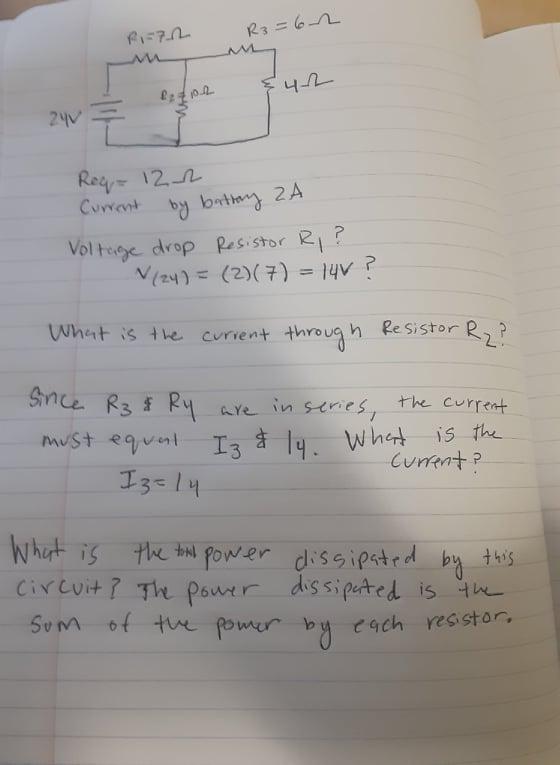 R1=7Ω
R3=6Ω
R2
10Ω
4Ω
24V
Req= 12Ω
Current by battery 2A
Voltage drop Resistor R1?
V(24) = (2)(7) = 14V ?
What is the current through Resistor R2?
Since R3 & R4 are in series, the current
must equal I3 & I4. What is the
current?
I3=I4
What is the total power dissipated by this
circuit? The power dissipated is the
sum of the power by each resistor.